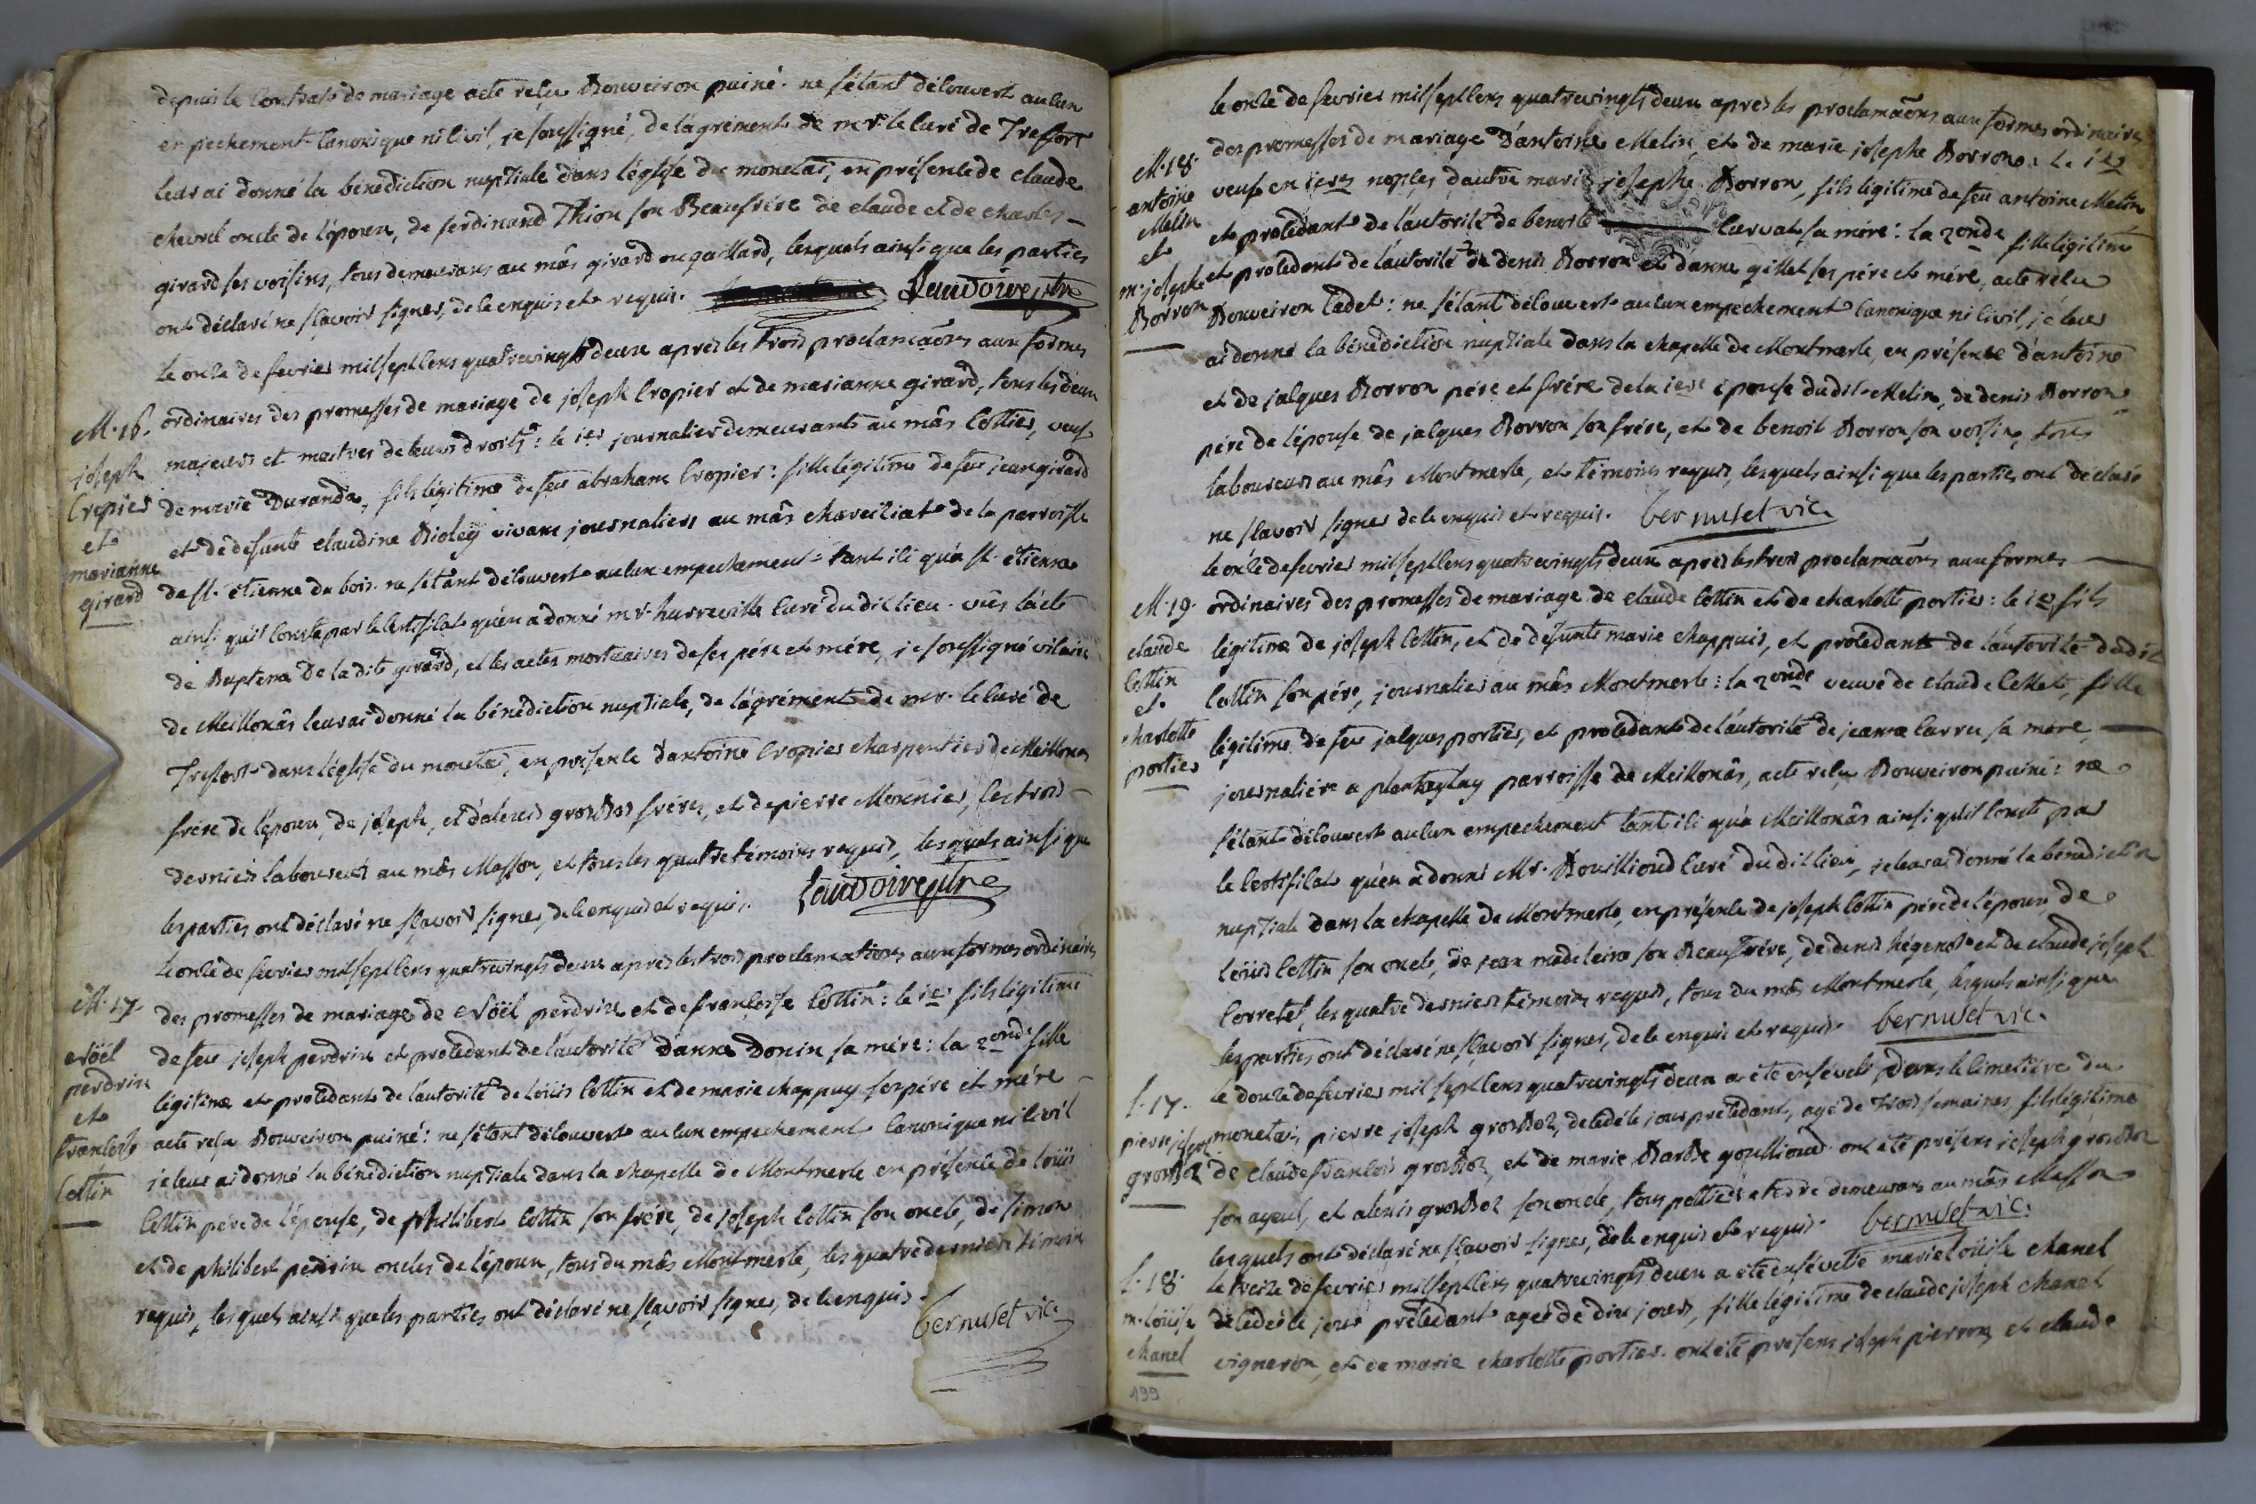 depuis le Contrat de mariage acte reçu Bouveiron puiné. ne s'étant découvert aucun
empechement Canonique ni civil, je soussigné, de l'agrément de mr. le Curé de Treffort
leur ai donné la bénédiction nuptiale dans l'église du monetai, en présence de claude
chevrel oncle de l'époux, de ferdinand Thion son Beaufrére de claude et de charles
girard ses voisins, tous demeurans au mâs girard ou gaillard, lesquels ainsi que les parties
ont déclaré ne sçavoir signer, de ce enquis et requis.
Le onze de fevrier mil sept cens quatrevingts deux après les trois proclamaõns aux formes
M. 16.
joseph
Cropier
et
marianne
girard
ordinaires des promesses de mariage de joseph Cropier et de marianne girard, tous les deux
majeurs et maitres de leurs droits: le 1er journalier demeurants au mâs Cottier, veuf
de marie Durand, fils légitime de feu abraham Cropier: fille légitime de feu jean girard
et de defunte claudine Dioley vivans journaliers au mâs chaveiriat de la parroisse
de st. étienne du bois. ne s'étant découvert aucun empechement tant ici qu'à st. étienne
ainsi qu'il Conste par le Certificat qu'en a donné mr. Curé du dit lieu. vûs l'acte
de Baptême De la dite girard, et les actes mortuaires de ses pére et mére, je soussigné vicaire
de Meillonâs leur ai donné la bénédiction nuptiale, de l'agrément de mr. le Curé de
Treffort dans l'église du monetai, en présence d'antoine Cropier charpentier de Meillonas
frére de l'époux, de joseph, et d'alexis grosBoz fréres, et de pierre Monnier, les trois
derniers laboureurs au mâs Masson, et tous les quatre témoins requis, lesquels ainsi que
les parties ont déclaré ne sçavoir signer, de ce enquis et requis.
Le onze de fevrier mil sept cens quatrevingts deux après les trois proclamations aux formes ordinaires
M. 17.
Nöël
perdrix
et
francoise
Cottin
des promesses de mariage de Nöël perdrix et de francoise Cottin: le 1er fils légitime
de feu joseph perdrix et procedant de l'autorité d'anne Donin sa mére: la 2onde fille
légitime et procedante de l'autorité de Loüis Cottin et de marie chappuy ses pére et mére
acte reçu Bouveiron puiné: ne s'étant découvert aucun empechement Canonique ni civil
je leur ai donné la bénédiction nuptiale dans la chapelle de Montmerle en présence de Loüis
Cottin pére de l'épouse, de philibert Cottin son frére, de joseph Cottin son oncle, de simon
et de philibert perdrix oncles de l'époux, tous du mâs Montmerle, les quatre derniers témoins
requis, lesquels ainsi que les parties ont déclaré ne sçavoir signer, de ce enquis.
bernuset vic.
le onze de fevrier mil sept cens quatrevingts deux après les proclamaõns aux formes ordinaires
M. 18.
antoine
Melin
et
m. josephe
Borron
des promesses de mariage D'antoine Melin, et de marie josephe Borron: Le 1er
veuf en 1eres nopces d'autre marie josephe Borron, fils légitime de feu antoine Melin
et procedant de l'autorité de benoite Curvat sa mére: la 2onde fille légitime
et procedente de l'autorité de denis Borron et d'anne gillet ses pére et mére, acte reçu
Bouveiron Cadet: ne s'étant découvert aucun empechement Canonique ni civil, je leur
ai donné la bénédiction nuptiale dans la chapelle de Montmerle, en présence d'antoine
et de jacques Borron pére et frére de la 1ere épouse dudit Melin, de denis Borron
pére de l'épouse de jacques Borron son frére, et de benoit Borron son voisin, tous
laboureurs au mâs Montmerle, et témoins requis, lesquels ainsi que les parties ont déclaré
ne sçavoir signer de ce enquis et requis. bernuset vic.
le onze de fevrier mil sept cens quatrevingts deux après les trois proclamaõns aux formes
M. 19.
claude
Cottin
et
charlotte
portier
ordinaires des promesses de mariage de claude Cottin et de charlotte portier: le 1er fils
légitime de joseph Cottin, et de defunte marie chappuis, et procedant de l'autorité dudit
Cottin son pére, journalier au mâs Montmerle: la 2onde veuve de claude fille
légitime de feu jacques portier, et procedante de l'autorité de jeanne Carru sa mere,
journaliere a plantaglay parroisse de Meillonâs, acte reçu Bouveiron puiné: ne
s'étant découvert aucun empechement tant ici qu'à Meillonâs ainsi qu'il Conste par
le Certificat qu'en a donné Mr. Bouillioud Curé du dit lieu, je leur ai donné la bénédiction
nuptiale dans la chapelle de Montmerle, en présence de joseph Cottin pére de l'époux, de
Loüis Cottin son oncle, de jean madeleine son Beaufrére, de denis et de claude joseph
Corretel, les quatre derniers témoins requis, tous du mâs Montmerle, lesquels ainsi que
les parties ont déclaré ne sçavoir signer, de ce enquis et requis. bernuset vic.
S. 17.
pierre joseph
grosBoz
le douze de fevrier mil sept cens quatrevingts deux a été enséveli dans le Cimetière du
monetai, pierre joseph grosBoz, decedé le jour précedant, agé de trois semaines, fils légitime
de claude francois grosBoz, et de marie BarBe goullioud. ont été présens joseph grosBoz
son ayeul, et alexis grosBoz son oncle, tous demeurans au mâs Masson
lesquels ont déclaré ne sçavoir signer, de ce enquis et requis. bernuset vic.
S. 18.
m. Loüise
chanel
le treize de fevrier mil sept cens quatrevingts deux a été ensévelie marie Loüise chanel
decedée le jour précedant ageé de dix jours, fille légitime de claude joseph chanel
vigneron, et de marie charlotte portier. ont été presens joseph pierron et claude
199